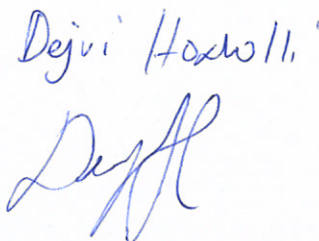 Dejvi Hoxholli